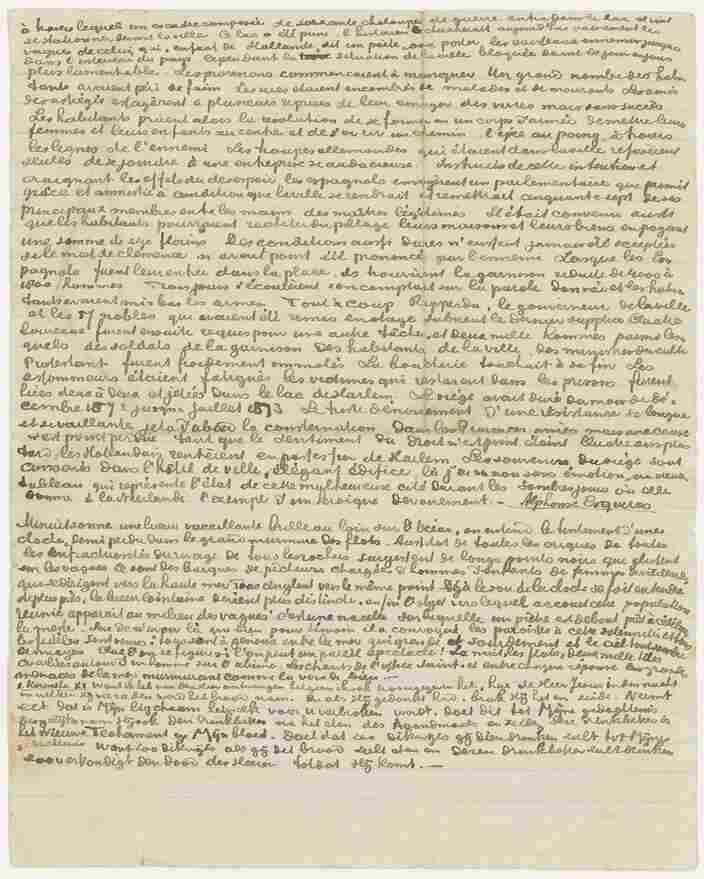 à travers lequel une escadre composée de soixante chaloupes de guerre entra dans le lac et vint
se stationner devant la ville. Ce lac a été l'historien chercherait aujourd'hui vainement les
vagues de celui qui, enfant de Hollande, dit un poète, osa porter les vaisseaux ennemis jusque
dans l'intérieur du pays. Cependant la situation de la ville bloquée devint de jour en jour
plus lamentable. Les provisions commencaient à manquer. Un grand nombre des habi
tants avaient péri de faim. Les rues étaient encombrées de malades et de mourants. Les amis
des assiégés essayèrent à plusieurs reprises de leur envoyer des vivres mais sans succès
Les habitants prirent alors la résolution de se former en un corps d'armée de mettre leurs
femmes et leurs enfants au centre et de s'ouvrir un chemin l'épée au poing, à travers
les lignes de l'ennemi. Les troupes allemandes qui étaient dans la ville refusèrent
seules de se joindre à une entreprise si audacieuse. Instruits de cette intention et
craignant les effets du désespoir les espagnols envoyèrent un parlementaire qui promit
grâce et amnistie à condition que la ville se rendrait et remettrait cinquante sept de ses
principaux membres entre les mains des maîtres légitimes. Il était convenu aussi
que les habitants pourraient racheter du pillage leurs maisons et leurs biens en payant
une somme de florins. Des conditions aussi dures n'eussent jamais été acceptées
si le mot de clémence n'avait point été prononcé par l'ennemi. Lorsque les Es
pagnols furent entrés dans la place, ils trouvèrent la garnison réduite de 4000 à
1800 hommes. Trois jours s'écoulèrent on comptait sur la parole donnée et les habi
tants avaient mis bas les armes. Tout à coup Ripperda, le gouverneur de la ville
et les 57 nobles qui avaient été remis en otage subirent le dernier supplice. Quatre
bourreaux furent ensuite requis pour une autre tâche, et deux mille hommes parmi les
quels des soldats de la garnison des habitants de la ville, des ministres du culte
Protestant furent froidement immolés. La boucherie touchait à sa fin. Les
assommeurs étaient fatigués les victimes qui restaient dans les prisons furent
liées deux à deux et jetées dans le lac de Harlem. Le siège avait duré du mois de dé
cembre 1572 jusqu'en juillet 1573. Le triste dénouement d'une résistance si longue
et si vaillante jeta d'abord la consternation dans les Provinces unies mais une cause
n'est point perdue tant que le sentiment du droit n'est point éteint. Quatre ans plus
tard, les Hollandais rentrèrent en possession de Harlem. Les souvenirs du siège sont
conservés dans l'hôtel de ville, élégant édifice là j'ai vu non sans émotion, un vieux
tableau qui représente l'état de cette malheureuse cité durant les sombres jours où elle
donna à la Néerlande l'exemple d'un héroïque dévouement. - Alphonse Esquiros
Minuit sonne une lueur vacillante brille au loin sur l'Océan, on entend le tintement d'une
cloche, demi perdu dans le grand murmure des flots. Aussitôt de toutes les criques de toutes
les enfractuosités du rivage de tous les rochers surgissent de longs points noirs que glissent
sur les vagues. Ce sont des barques de pêcheurs chargées d'hommes d'enfants de femmes de vieillards
qui se dirigent vers la haute mer, tous cinglent vers le même point. Déjà le son de la cloche se fait entendre
de plus près, la lueur lointaine devient plus distincte enfin l'objet vers lequel accourt cette population
réunie apparaît au milieu des vagues! C'est une nacelle sur laquelle un prêtre est debout prêt à célébrer
la messe. Sûr de n'avoir là que Dieu pour témoin il a convoqué les paroisses à cette solennité et tous
les fidèles sont venus; tous sont à genoux entre la mer qui gronde et sourdement et le ciel tout sombre
de nuages. Que l'on se figure si l'on peut un pareil spectacle! La nuit, les flots, deux mille têtes
courbées autour d'un homme sur l'abîme. Les chants de l'office saint et entre chaque réponse les grandes
menaces de la mer murmurant comme la voix de Dieu. —
1 Korinthe XI Want ik heb van den Heer ontvangen hetgeen ik ook u overgegeven heb; Dat de Heer Jezus in den nacht
in welken hij verraden werd het brood nam. En als Hij gedankt had, brak Hij het en zeide: Neemt
eet dat is Mijn ligchaam hetwelk voor u verbroken wordt. Doet dit tot Mijne gedachtenis
Desgelijks nam Hij ook den drinkbeker na het eten des Avondmaals en zeide, Deze drinkbeker is
het nieuwe Testament in Mijn bloed. Doet dat zoo dikwijls gij dien drinken zult tot Mijne
gedachtenis Want zoo dikwijls als gij dit brood zult eten en dezen drinkbeker zult drinken
zoo verkondigt den dood des Heeren totdat Hij komt. —